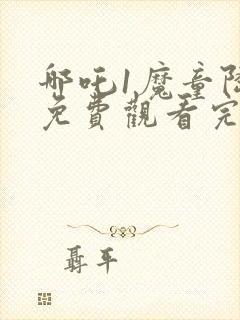 哪吒1魔童降
免費觀看完
聶平